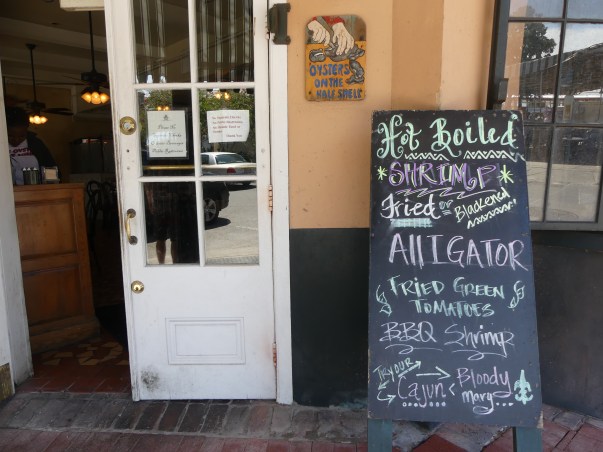 OYSTERS
ON THE
HALF SHELL
Hot Boiled
SHRIMP
Fried or Blackened
AllIGATOR
FRIED GREEN
TOMATOES
BBQ Shrimp
TRY OUR
Cajun Bloody
Mary